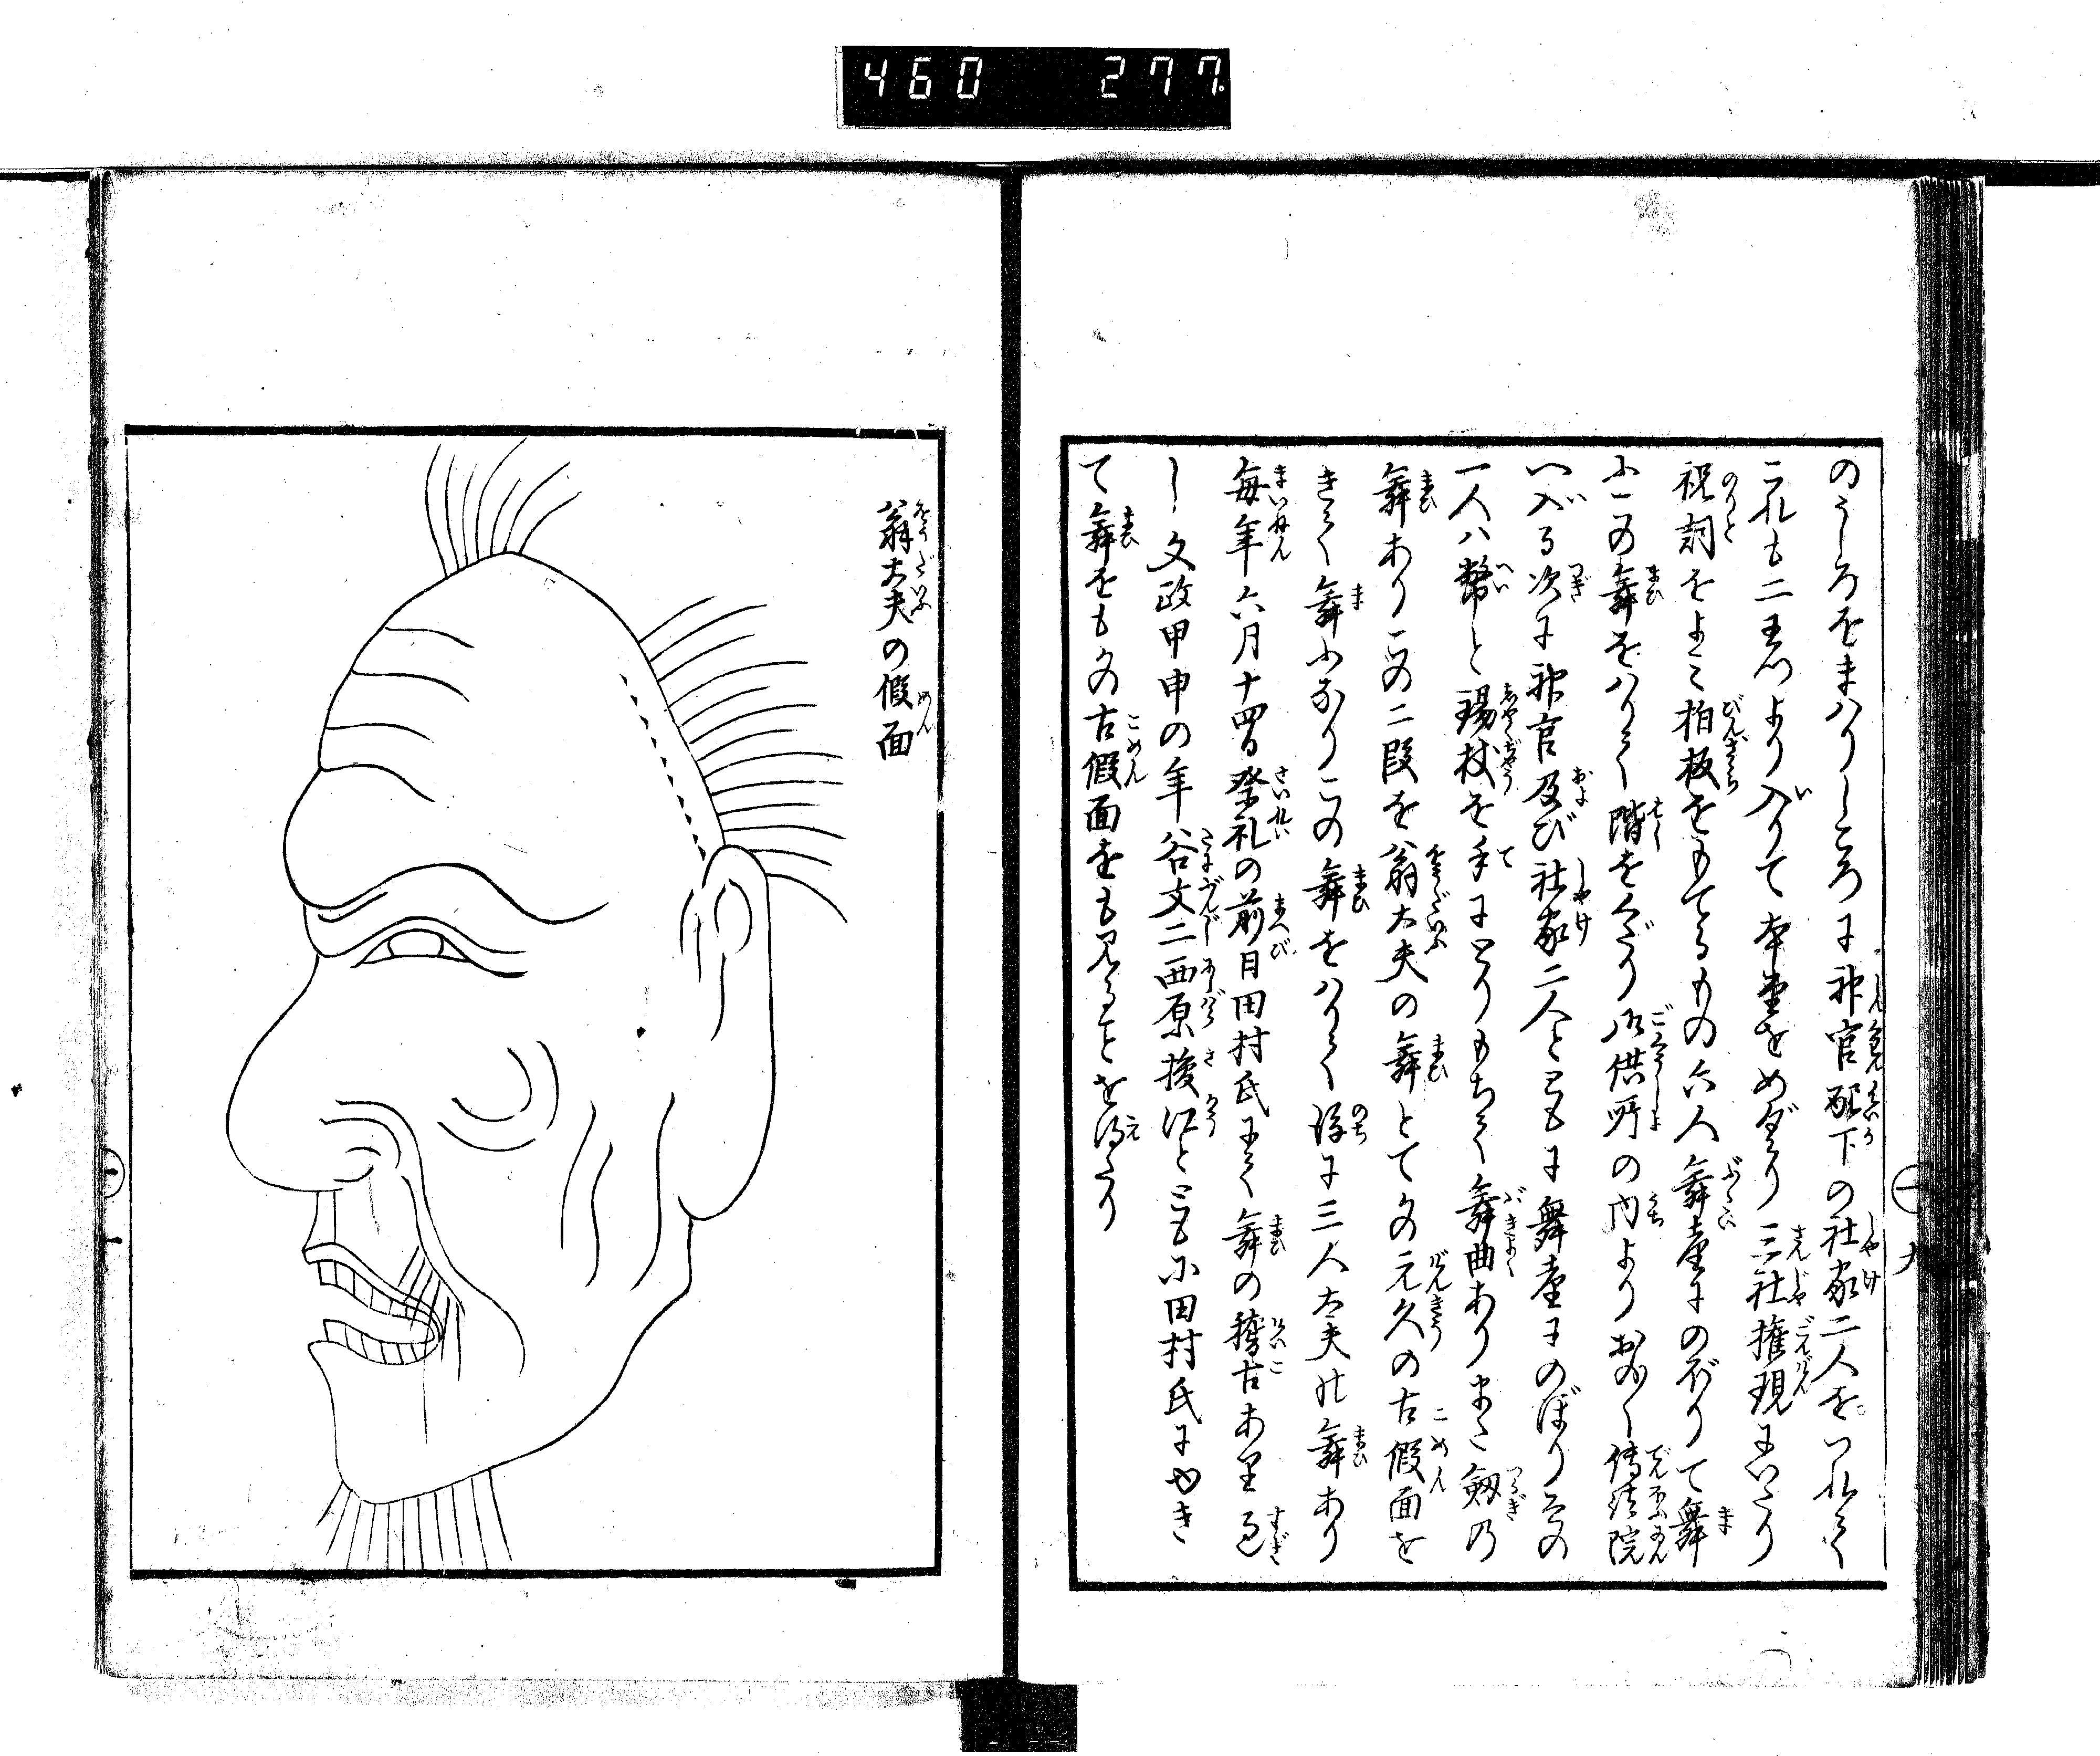 460 277
のうしろをまハりしころに神官配下の社家二人をつれて
これも二王門より入りて本堂をめぐり三社権現にいたり
祝詞をよミ柏板をもてるもの六人舞臺にのぼりて舞
ふこの舞をハりて階をくだり御供所の内よりおのおの傳法院
へ入る次に神官及び社家二人ともに舞臺にのぼりその
一人ハ幣と錫杖を手にとりもちて舞曲ありまた剱の
舞ありこの二段を翁太夫の舞とてかの元久の古假面を
きて舞ふなりこの舞をハりて後に三人太夫の舞あり
毎年六月十四日祭礼の前日田村氏にて舞の稽古あり過
し文政甲申の年谷文二西原梭江とともに田村氏にゆき
て舞をもかの古假面をも見ることを得たり
九
翁太夫の假面
十